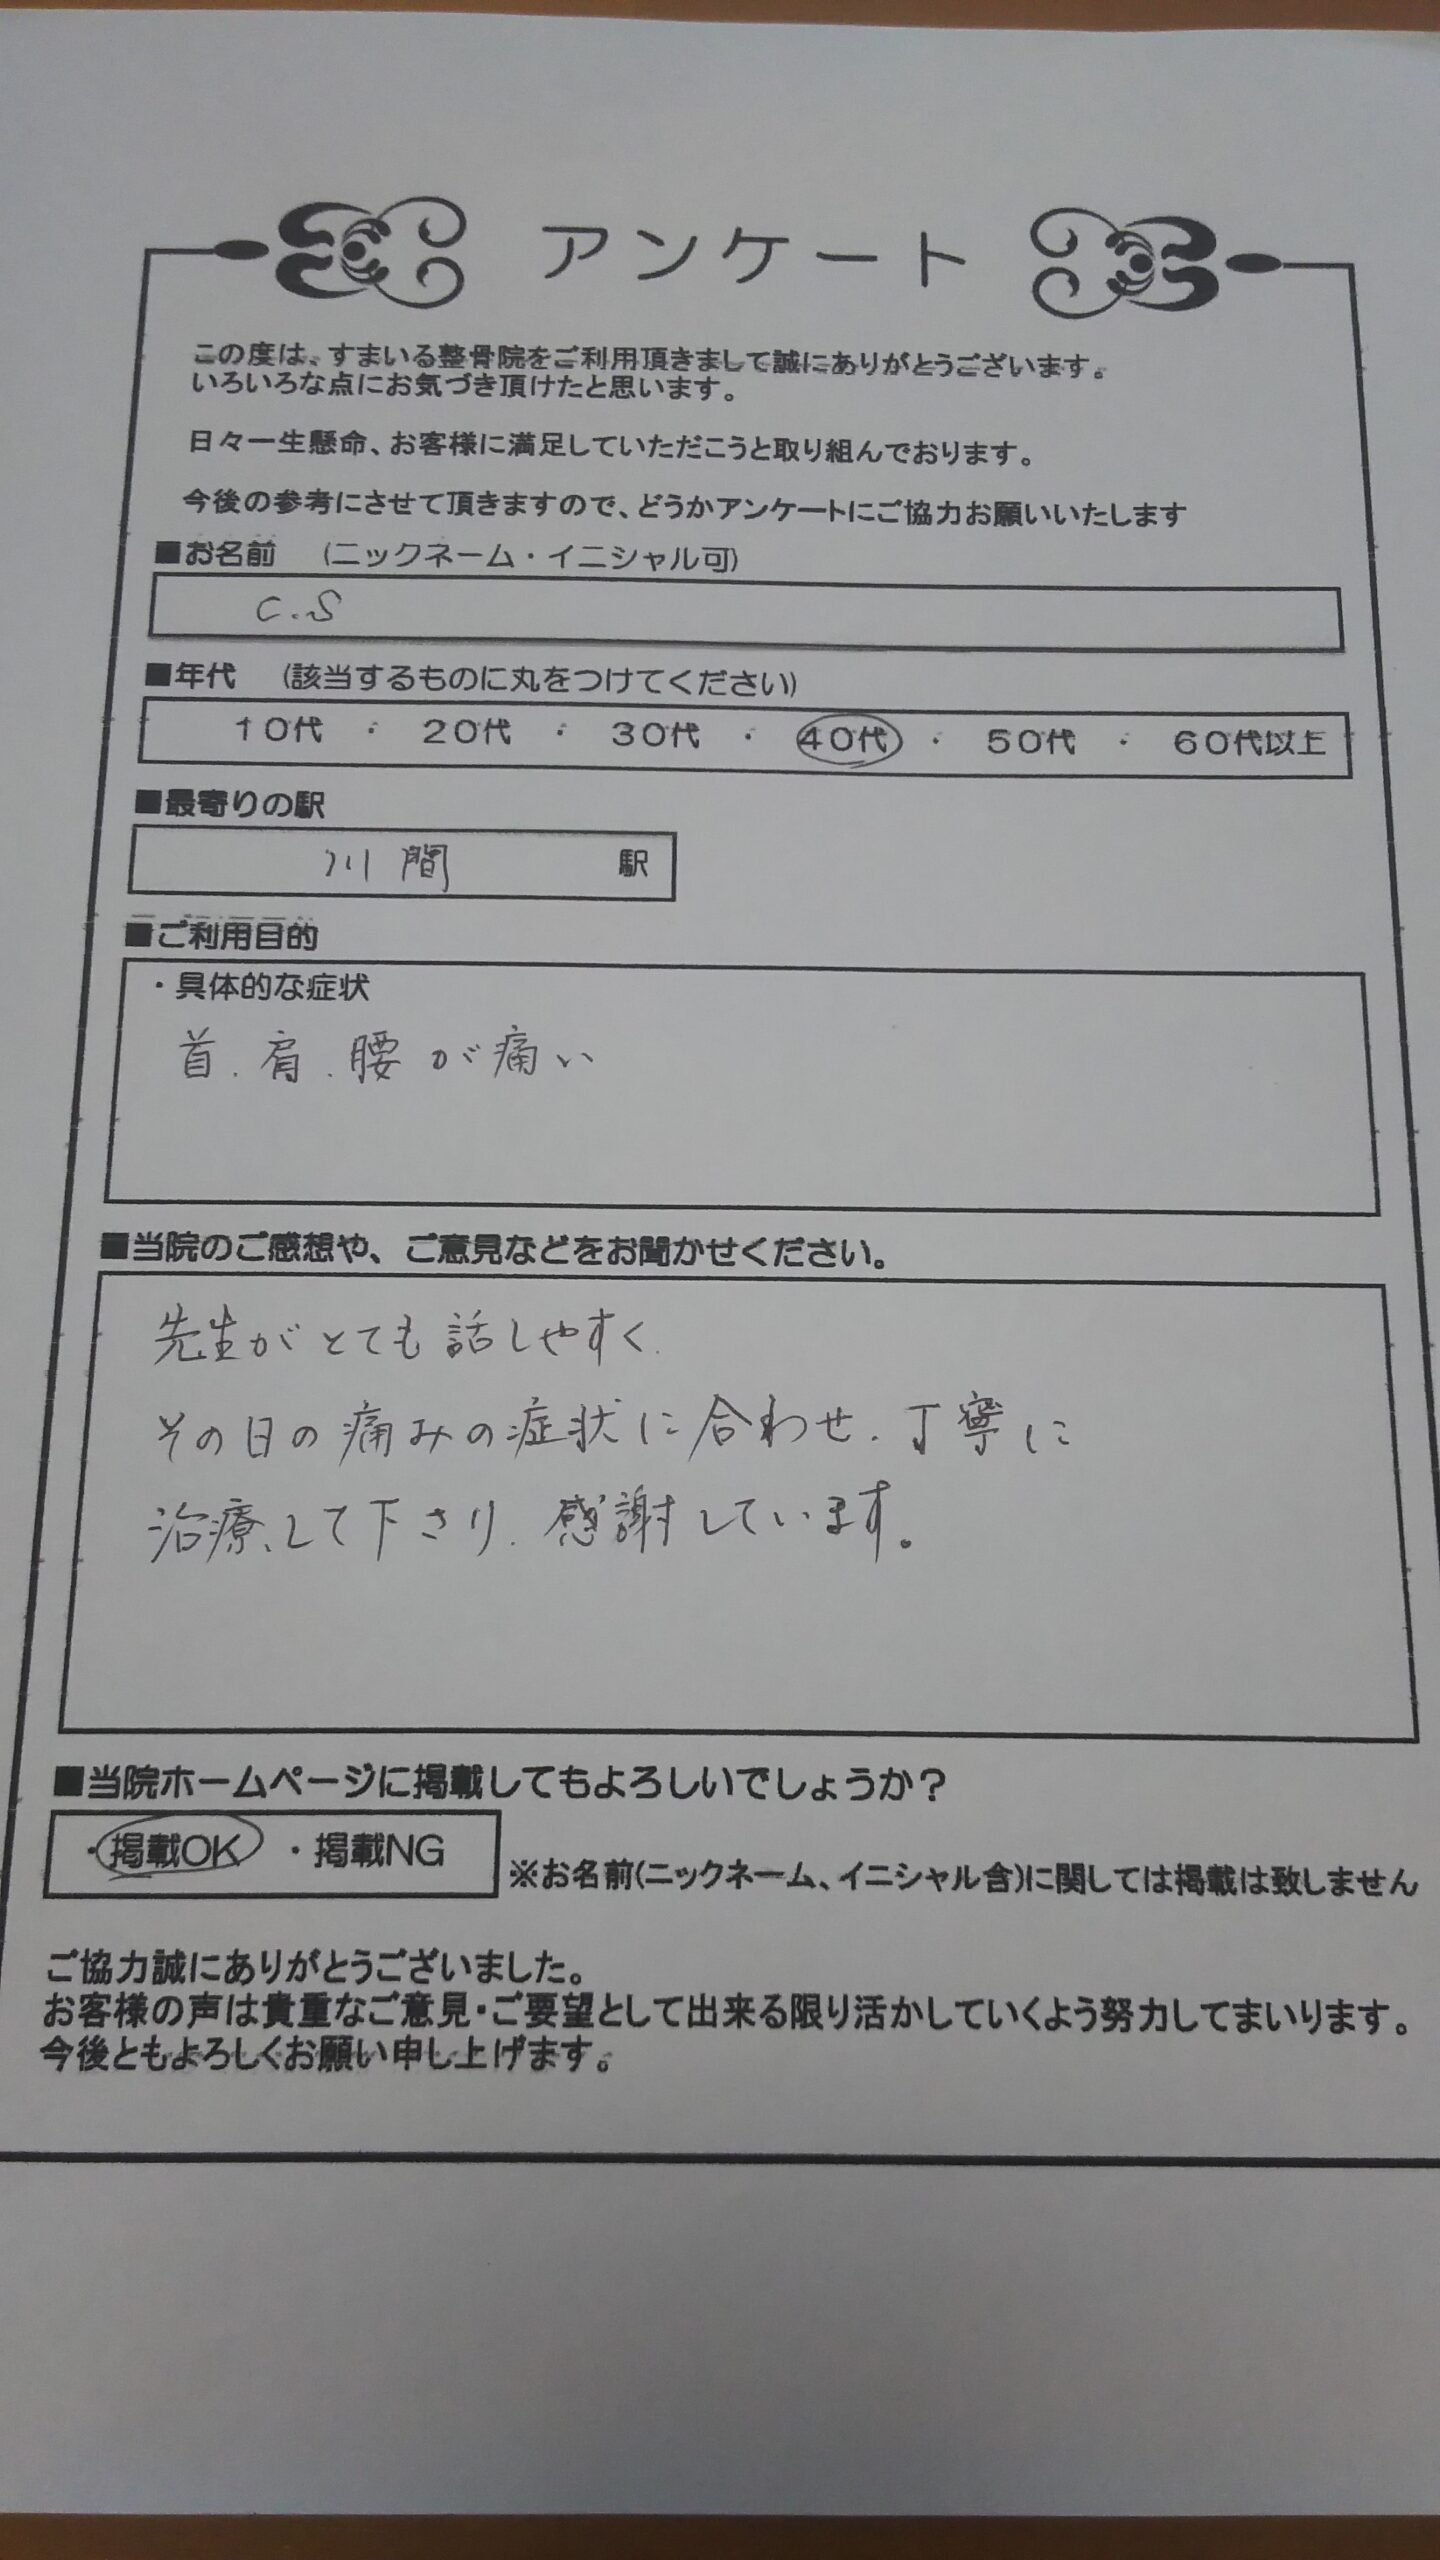 アンケート
この度は、すまいる整骨院をご利用頂きまして誠にありがとうございます。
いろいろな点にお気づき頂けたと思います。
日々一生懸命、お客様に満足していただこうと取り組んでおります。
今後の参考にさせて頂きますので、どうかアンケートにご協力お願いいたします
■お名前　(ニックネーム・イニシャル可)
C.S
■年代　(該当するものに丸をつけてください)
10代 ・ 20代 ・ 30代 ・ 40代 ・ 50代 ・ 60代以上
■最寄りの駅
川間 駅
■ご利用目的
・具体的な症状
首、肩、腰が痛い
■当院のご感想や、ご意見などをお聞かせください。
先生がとても話しやすく、
その日の痛みの症状に合わせ、丁寧に
治療して下さり、感謝しています。
■当院ホームページに掲載してもよろしいでしょうか？
・掲載OK ・掲載NG ※お名前(ニックネーム、イニシャル含)に関しては掲載は致しません
ご協力誠にありがとうございました。
お客様の声は貴重なご意見・ご要望として出来る限り活かしていくよう努力してまいります。
今後ともよろしくお願い申し上げます。